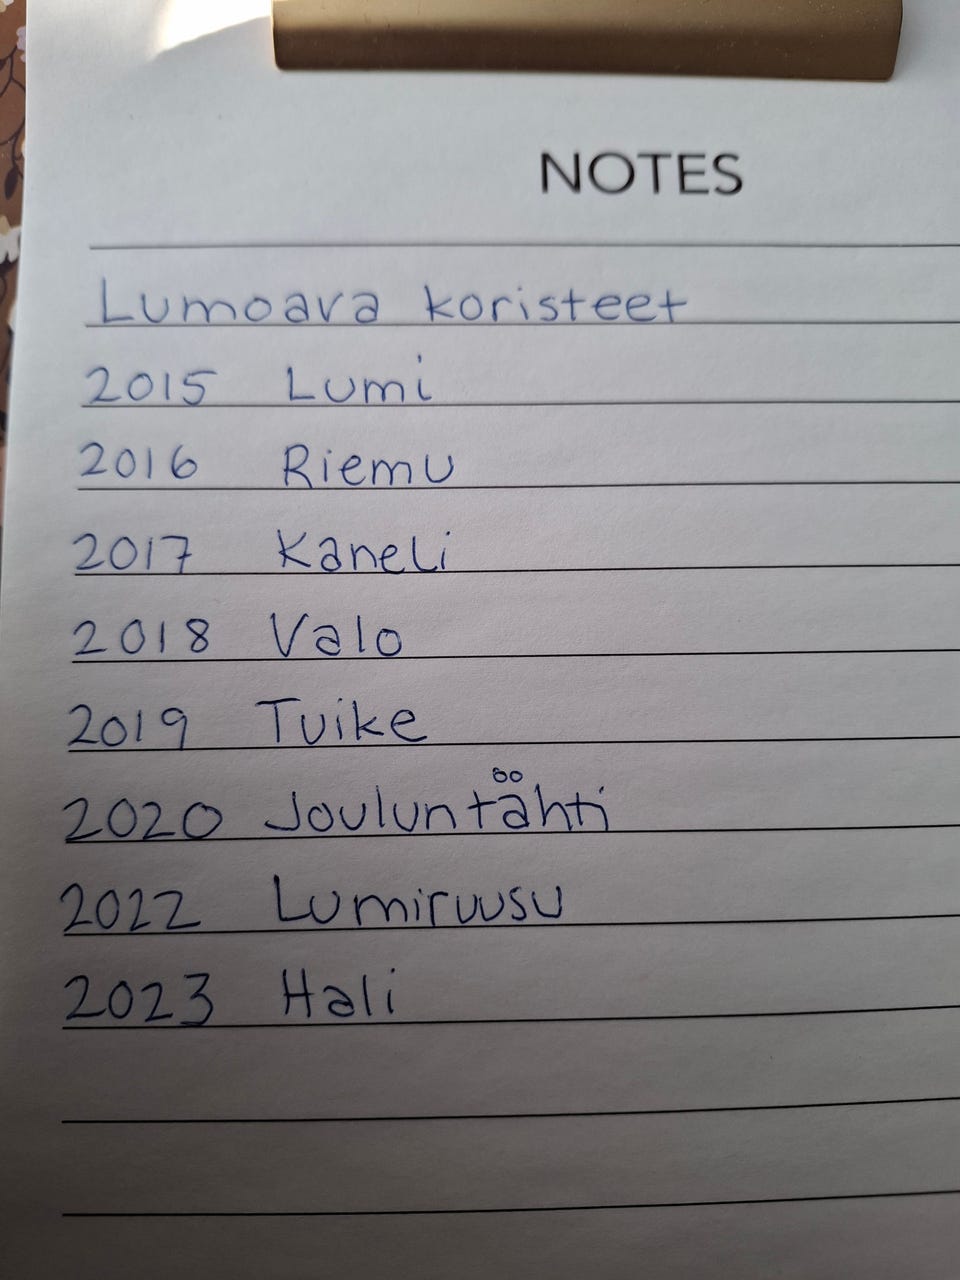 NOTES
Lumoava koristeet
2015 Lumi
2016 Riemu
2017 Kaneli
2018 Valo
2019 Tuike
2020 Jouluntähti
2022 Lumiruusu
2023 Hali